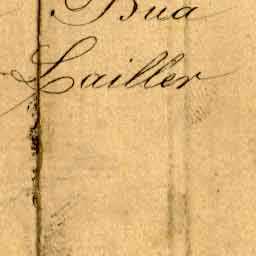 Bua
Lailler